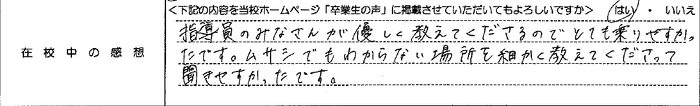 <下記の内容を当校ホームページ「卒業生の声」に掲載させていただいてもよろしいですか> はい ・ いいえ
在校中の感想
指導員のみなさんが優しく教えてくださるのでとても乗りやすかっ
たです。ムサシでもわからない場所を細かく教えてくださって
聞きやすかったです。